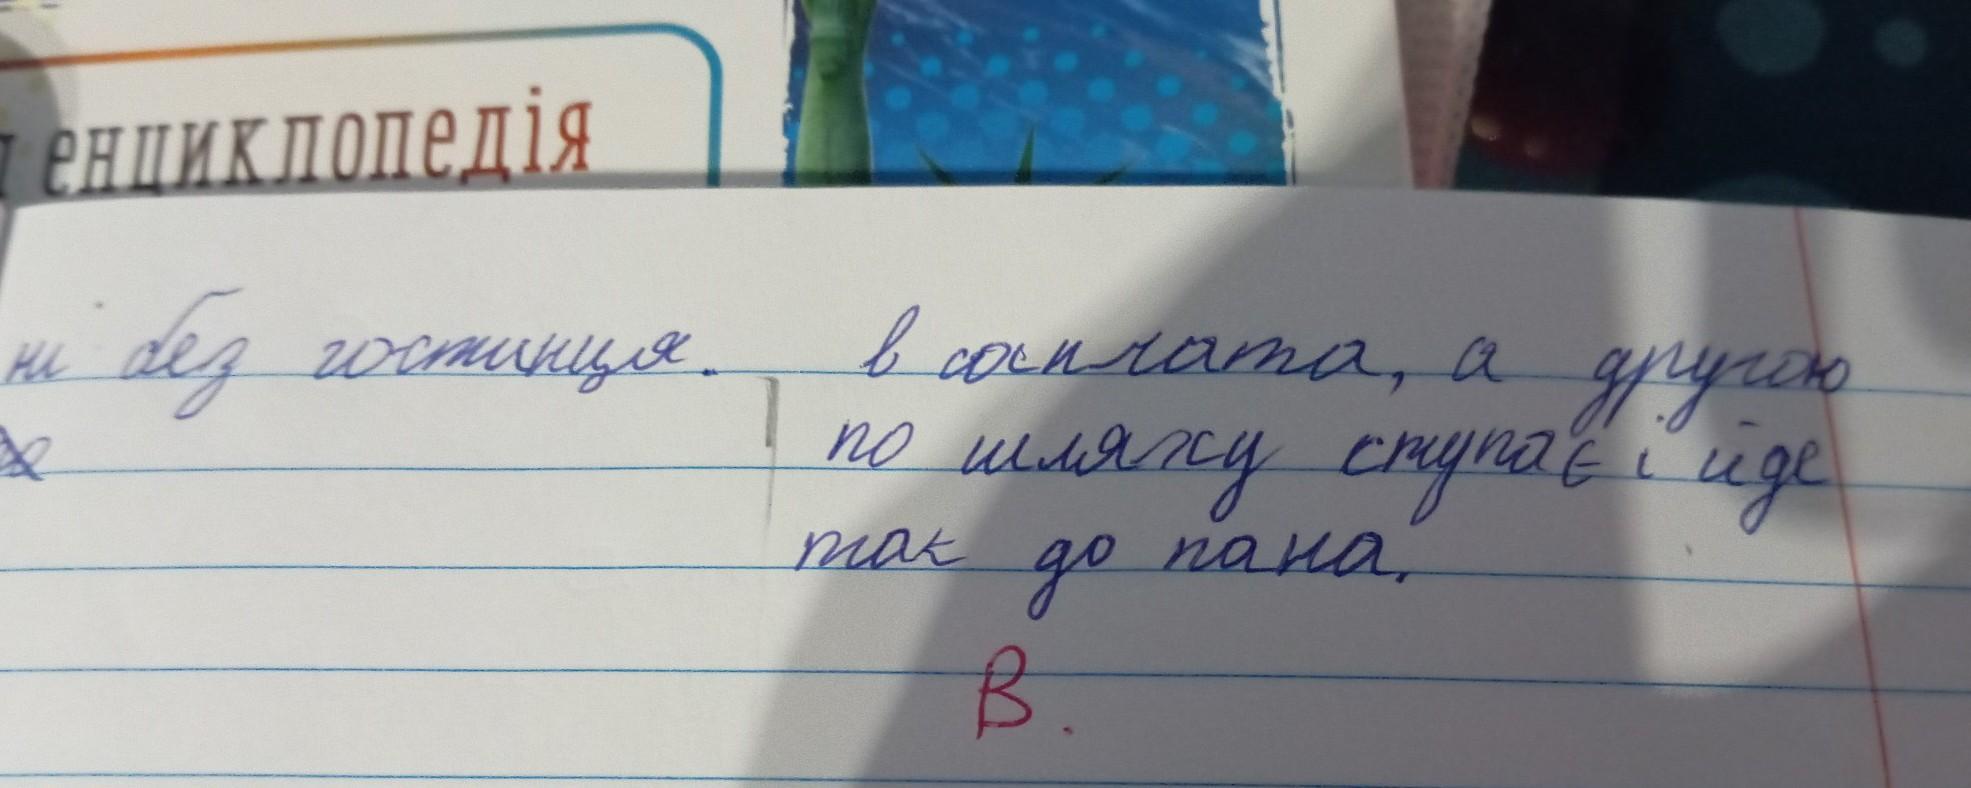 енциклопедія
ні без гостинця.
в а другою
по шляху ступає і йде
так до пана.
В.